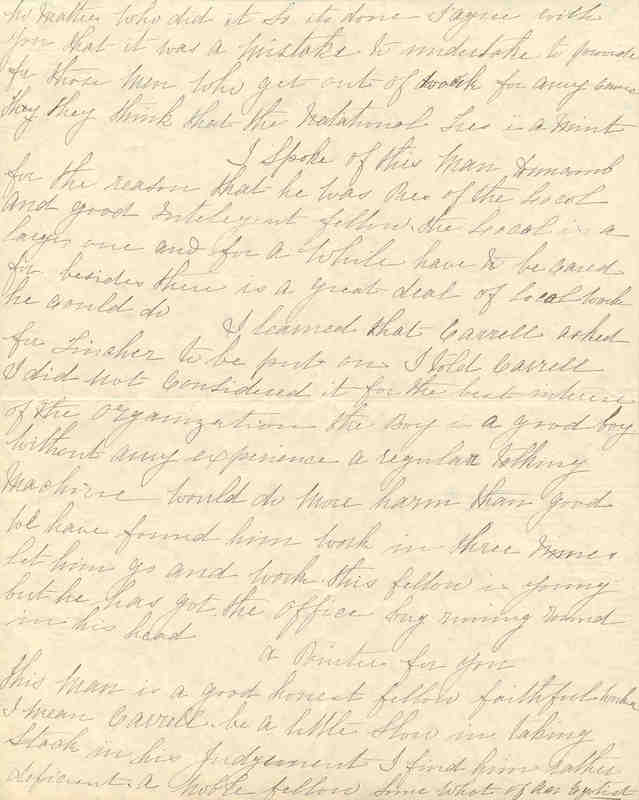 no matter who did it so its done I agree with
you that it was a mistake to undertake to provide
for those men who get out of work for any cause
they they think that the Natational Tres is a mint
I spoke of this man
for the reason that he was Pres of the Local
and good Intelegent fellow the Local is a
large one and for a while have to be cared
for besides there is a great deal of Local work
he could do
I learned that Cavrell asked
for Lincher to be put on I told Cavrell
I did not Considered it for the best interest
of the Organization the Boy is a good boy
without any experience a regular Talking
Machine would do more harm than good
We have found him work in three mines
let him go and work this fellow is young
but he has got the Office bug runing round
in his head
A Pointer for you
This man is a good honest fellow faithful worker
I mean Cavrell. be a little Slow in taking
Stock in his Judgement I find him rather
deficient. A Noble fellow some what of an